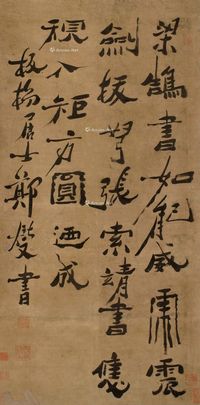 梁鵠書如龍威虎震
劍拔弩張索靖書應
規入矩方圓迺成
板橋居士鄭燮書